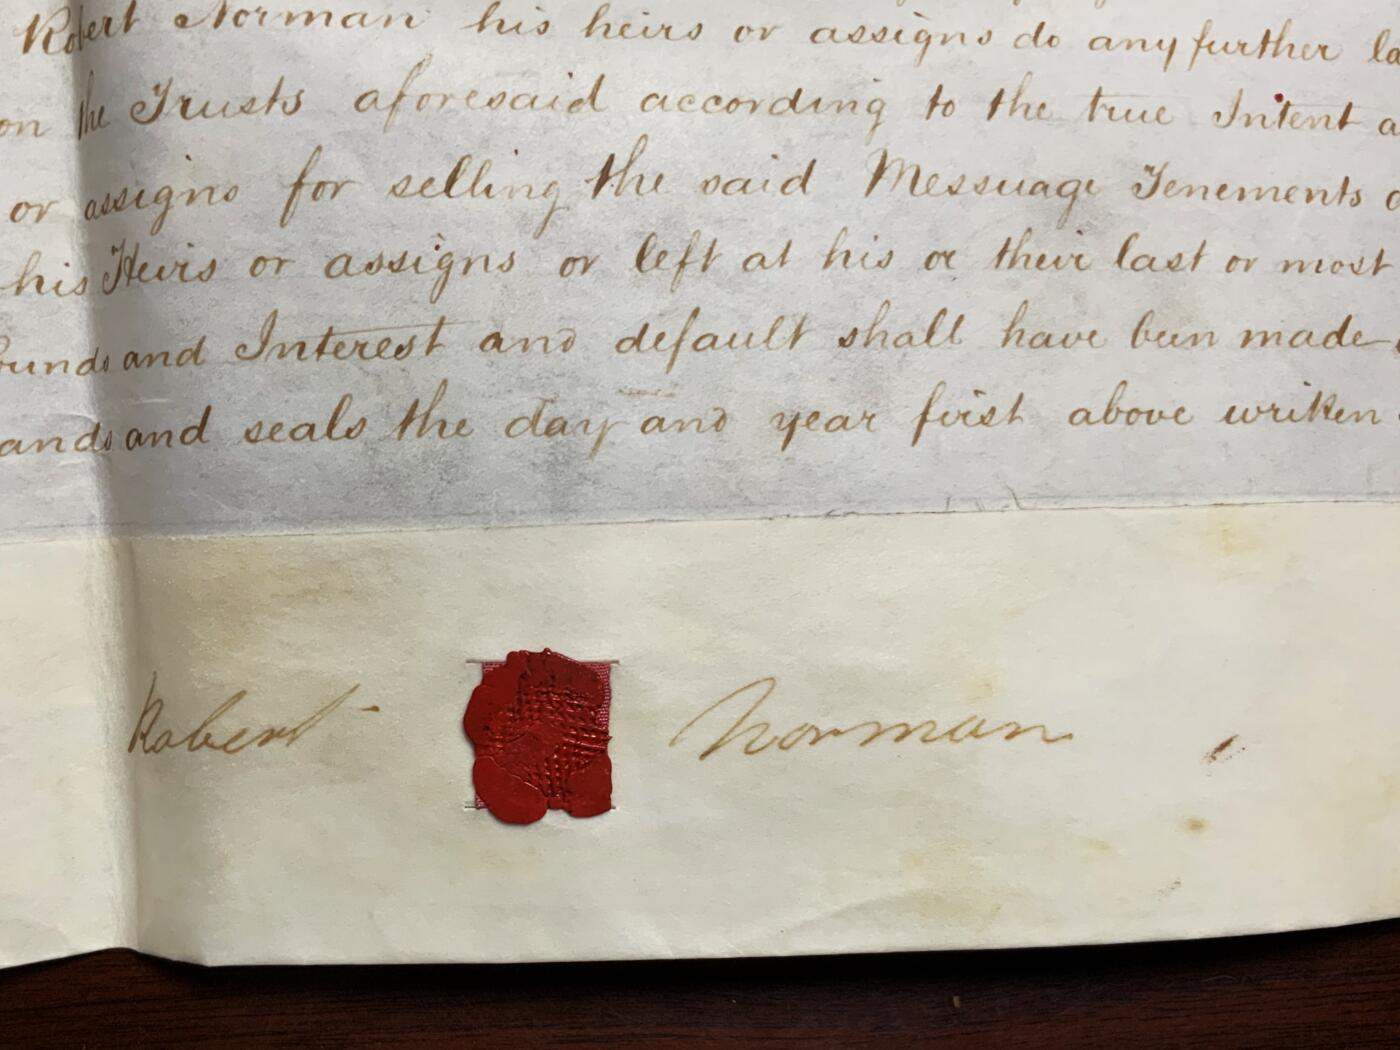 Robert Norman his heirs or assigns do any further la
on the Trusts aforesaid according to the true Intent a
or assigns for selling the said Messuage Tenements o
his Heirs or assigns or left at his or their last or most
ounds and Interest and default shall have been made
ands and seals the day and year first above written
Robert Norman